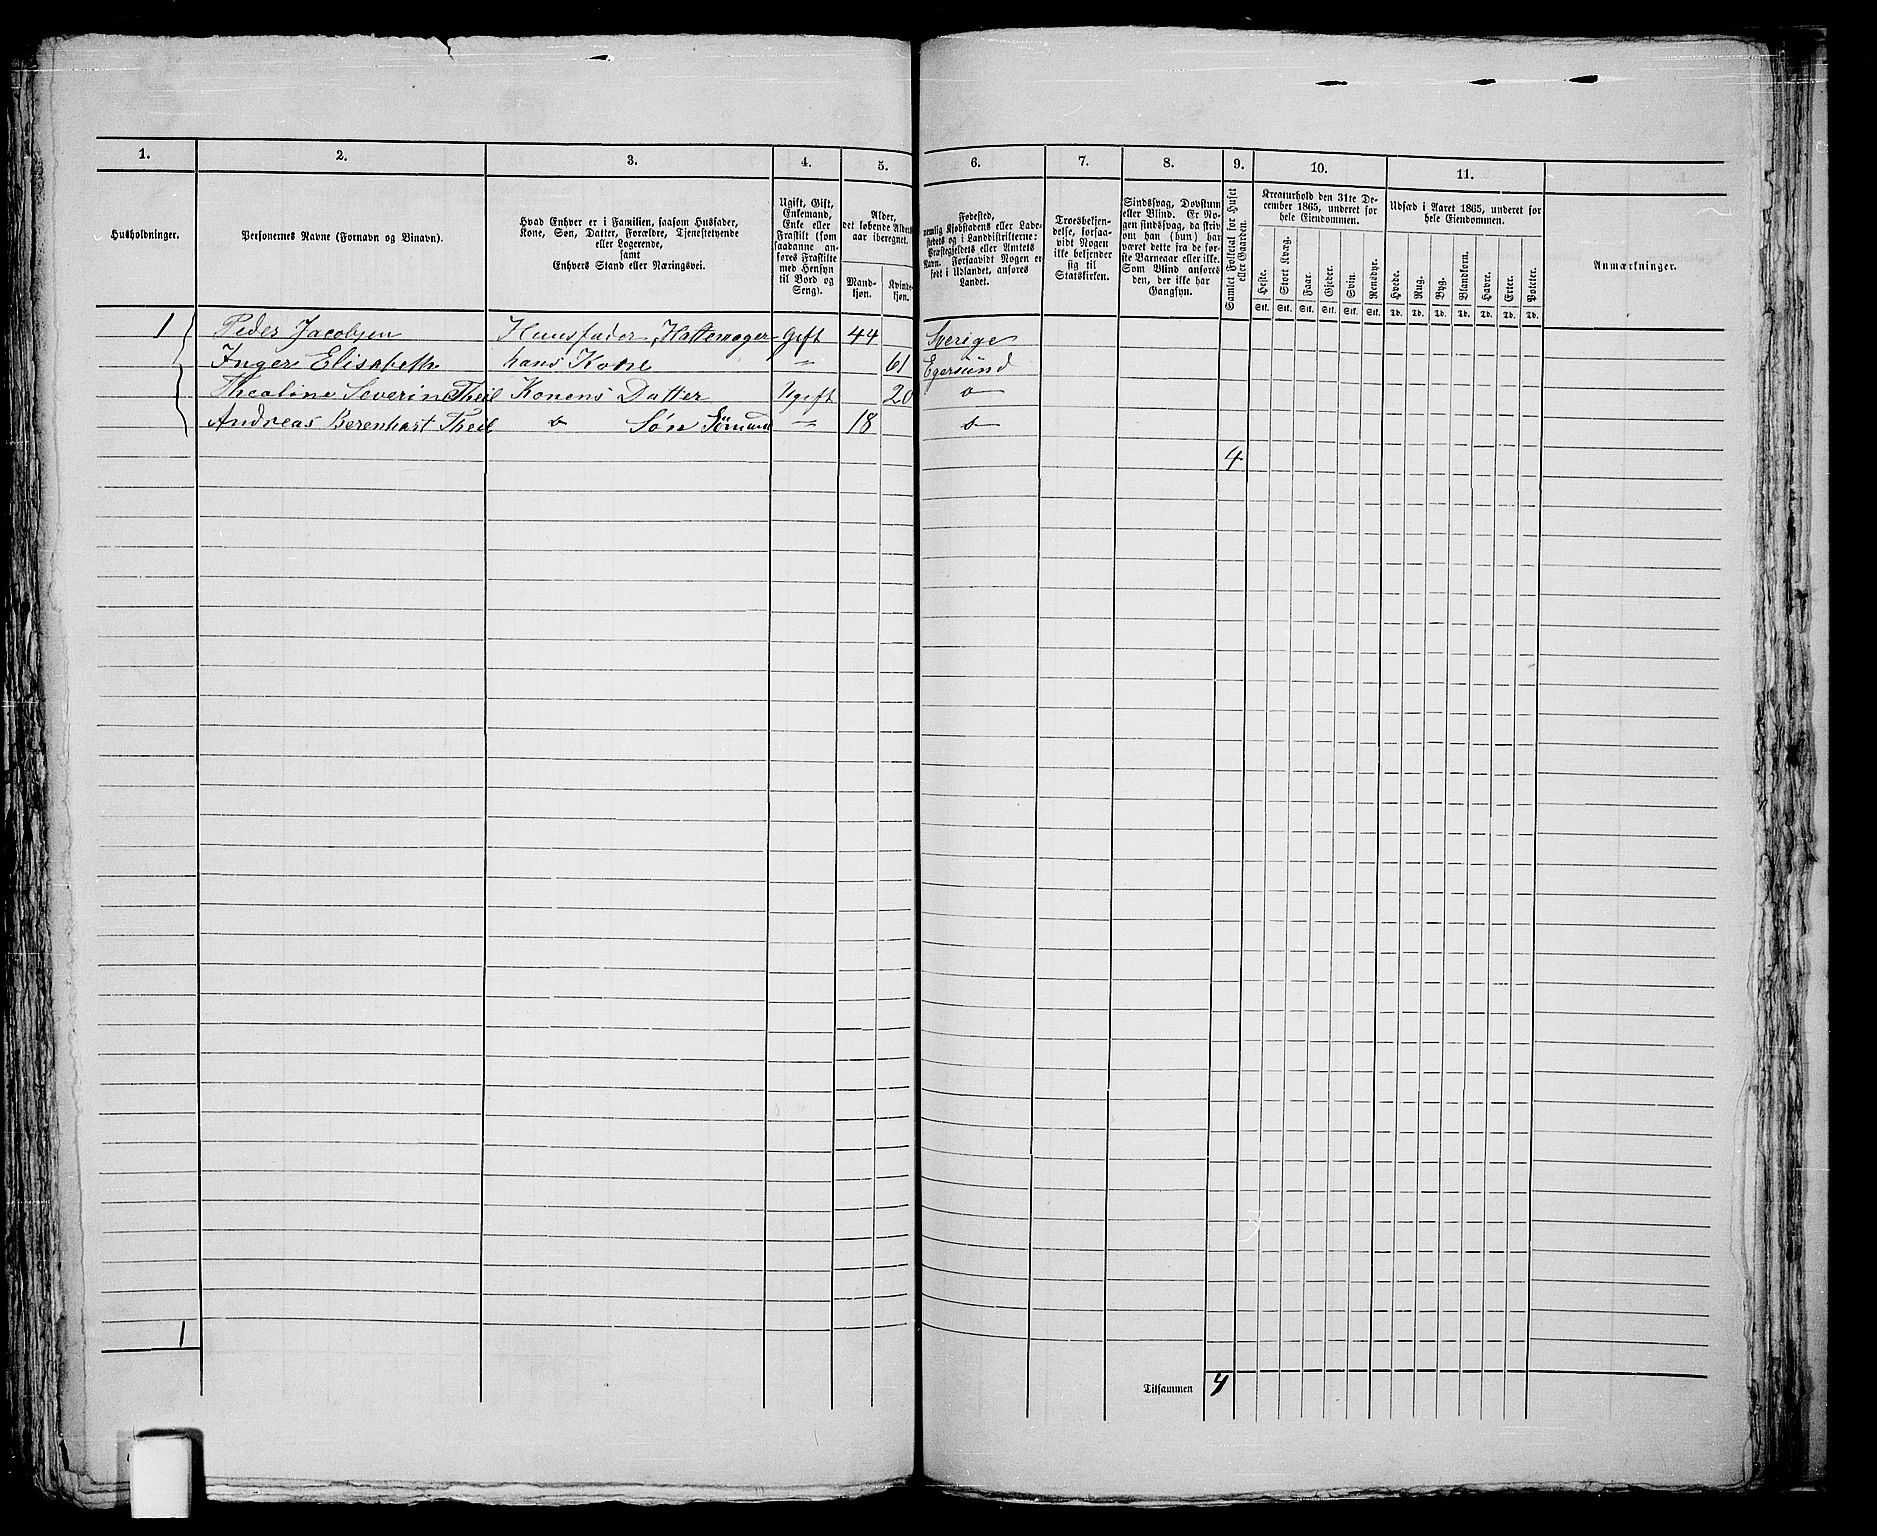 1. 2. 3. 4. 5. 6. 7. 8. 9. 10. 11.
Husholdninger.
Personernes Navne (Fornavn og Binavn).
Hvad Enhver er i Familien, saasom Husfader,
Kone, Søn, Datter, Forældre, Tjenestetyende
eller Logerende,
samt
Enhvers Stand eller Næringsvei.
Ugift, Gift,
Enkemand,
Enke eller
Fraskilt (som
saadanne an-
føres Fraskilte
med Hensyn
til Bord og
Seng).
Alder,
det løbende Alders-
aar iberegnet.
Mand-
kjøn.
Kvinde-
kjøn.
Fødested,
nemlig Kjøbstadens eller Lade-
stedets og i Landdistrikterne:
Præstegjeldets eller Amtets
Navn. Forsaavidt Nogen er
født i Udlandet, anføres
Landet.
Troesbekjen-
delse, forsaa-
vidt Nogen
ikke bekjender
sig til
Statskirken.
Sindssvag, Døvstum
eller Blind. Er No-
gen sindssvag, da skriv
om han (hun) har
været dette fra de før-
ste Barneaar eller ikke.
Som Blind anføres
den, der ikke har
Gangsyn.
Samlet Folketal for Huset
eller Gaarden.
Kreaturhold den 31te De-
cember 1865, underet for
hele Eiendommen.
Heste. Stort Kvæg. Faar. Gjeder. Svin. Rensdyr.
Stk. Stk. Stk. Stk. Stk. Stk.
Udsæd i Aaret 1865, underet for
hele Eiendommen.
Hvede. Rug. Byg. Blandkorn. Havre. Erter. Poteter.
Td. Td. Td. Td. Td. Td. Td.
Anmærkninger.
1 Peder Jacobsen Huusfader, Hattemager Gift 44 Sverige
Inger Elisabeth hans Kone " 61 Egersund
Theoline Severine Theil Konens Datter Ugift 20 do
Andreas Berenhart Theil do Søn Sømand " 18 do
4
1
Tilsammen 4